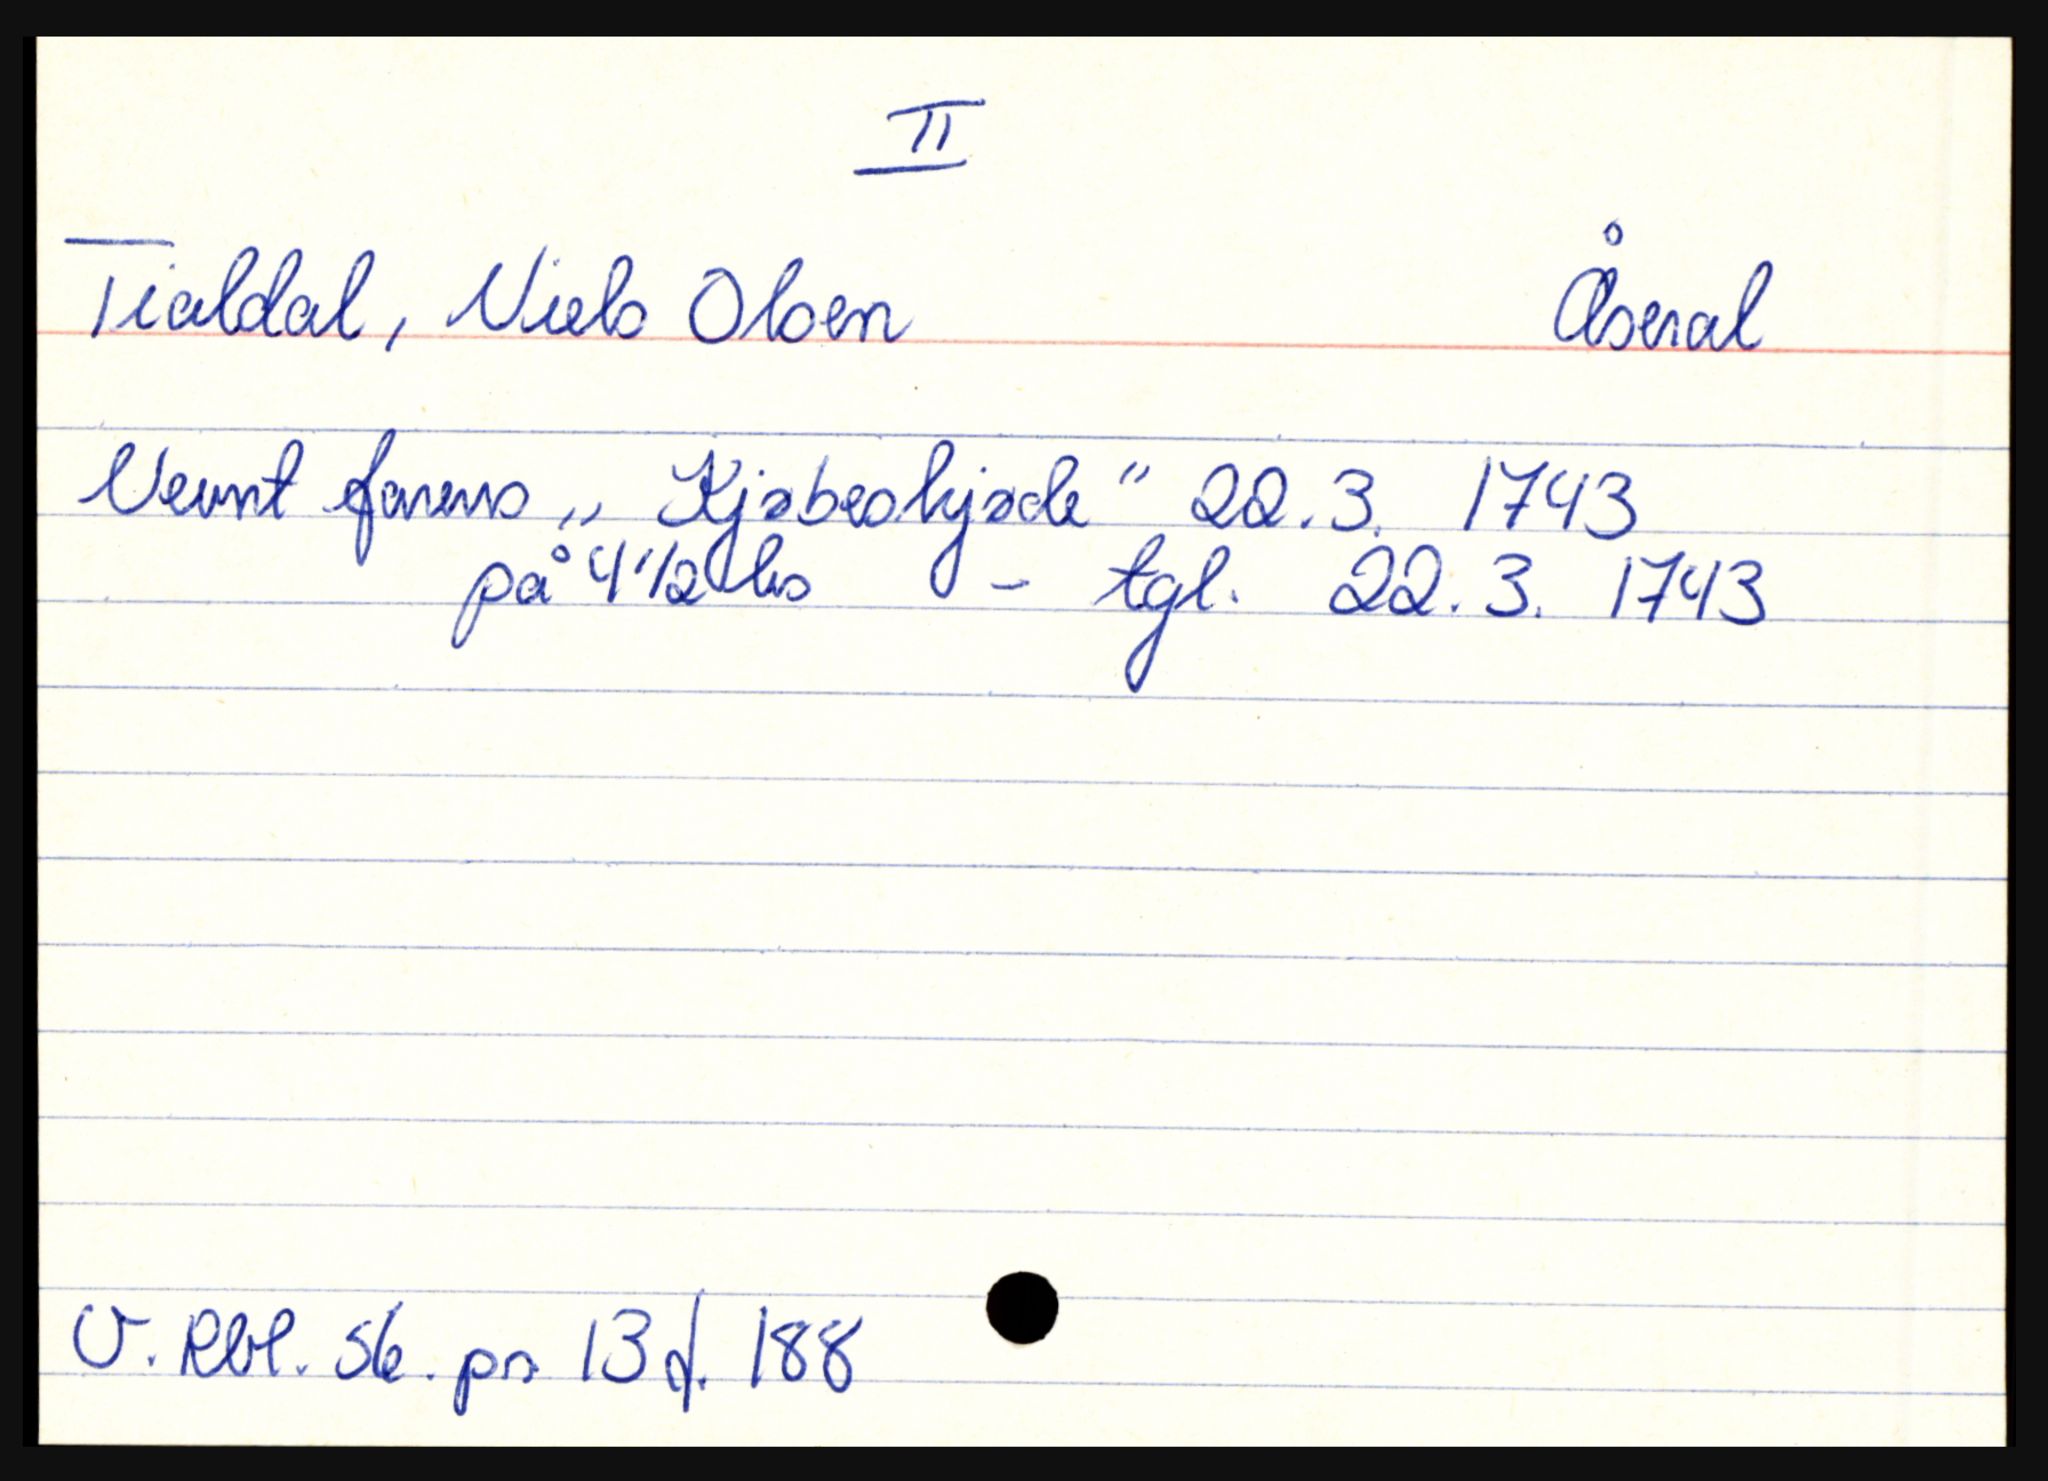 II
Tialdal, Niels Olsen Åseral
Nevnt farens „Kjøbeskjøde" 22.3. 1743
på 4 1/2 hs - tgl. 22.3. 1743
V. Rbl. 56. pn 13 f. 188